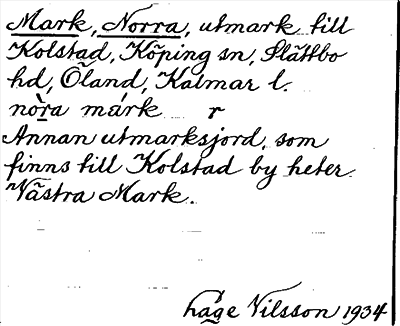 Mark, Norra, utmark till
Kolstad, Köping sn, Slättbo
hd, Öland, Kalmar l.
nòra márk r
Annan utmarksjord, som
finns till Kolstad by heter
Västra Mark.
Åge Nilsson 1934